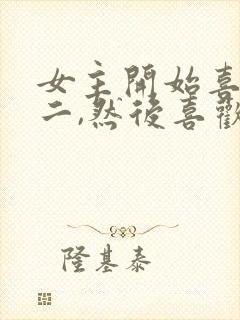 女主開始喜
二,然後喜歡
隆基泰